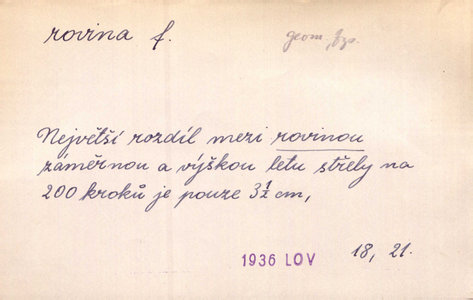 rovina f.
geom., fys.
Největší rozdíl mezi rovinou
záměrnou a výškou letu střely na
200 kroků je pouze 3½ cm,
1936 LOV 18, 21.